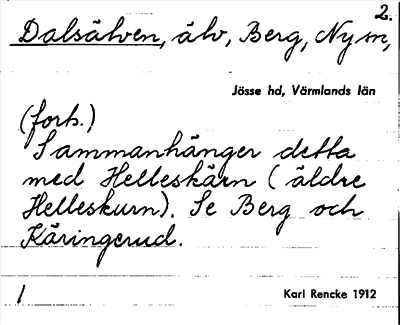 2.
Dalsälven, älv, Berg, Ny sn,
Jösse hd, Värmlands län
(forts.)
Sammanhänger detta
med Helleskärn (äldre
Helleskurn). Se Berg och
Käringerud.
1 Karl Rencke 1912